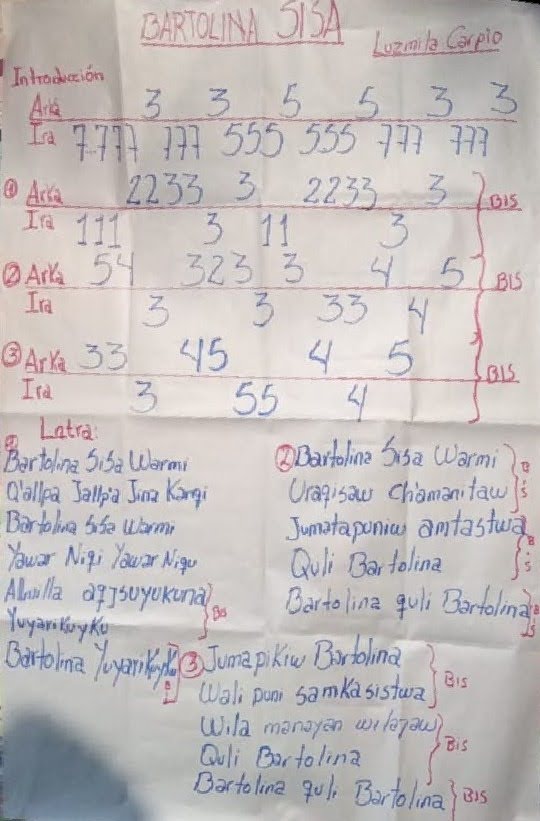 BARTOLINA SISA
Luzmila Carpio
Introducción
Arka 3 3 5 5 3 3
Ira 7777 777 555 555 777 777
① Arka 2233 3 2233 3 BIS
Ira 111 3 11 3
② Arka 54 323 3 4 5 BIS
Ira 3 3 33 4
③ Arka 33 45 4 5 BIS
Ira 3 55 4
Latra:
Bartolina Sisa Warmi
Q'allpa Jallp'a Jina Kanqi
Bartolina Sisa Warmi
Yawar Niqi Yawar Niqu
Yuyarikuyku BIS
Bartolina Yuyarikuyku
② Bartolina Sisa Warmi
Uraqisaw ch'amanitaw BIS
Jumataponiw amtastwa
Quli Bartolina BIS
Bartolina quli Bartolina BIS
③ Jumapikiw Bartolina
Wali puni samkasistwa BIS
Wila manayan
Quli Bartolina BIS
Bartolina quli Bartolina BIS